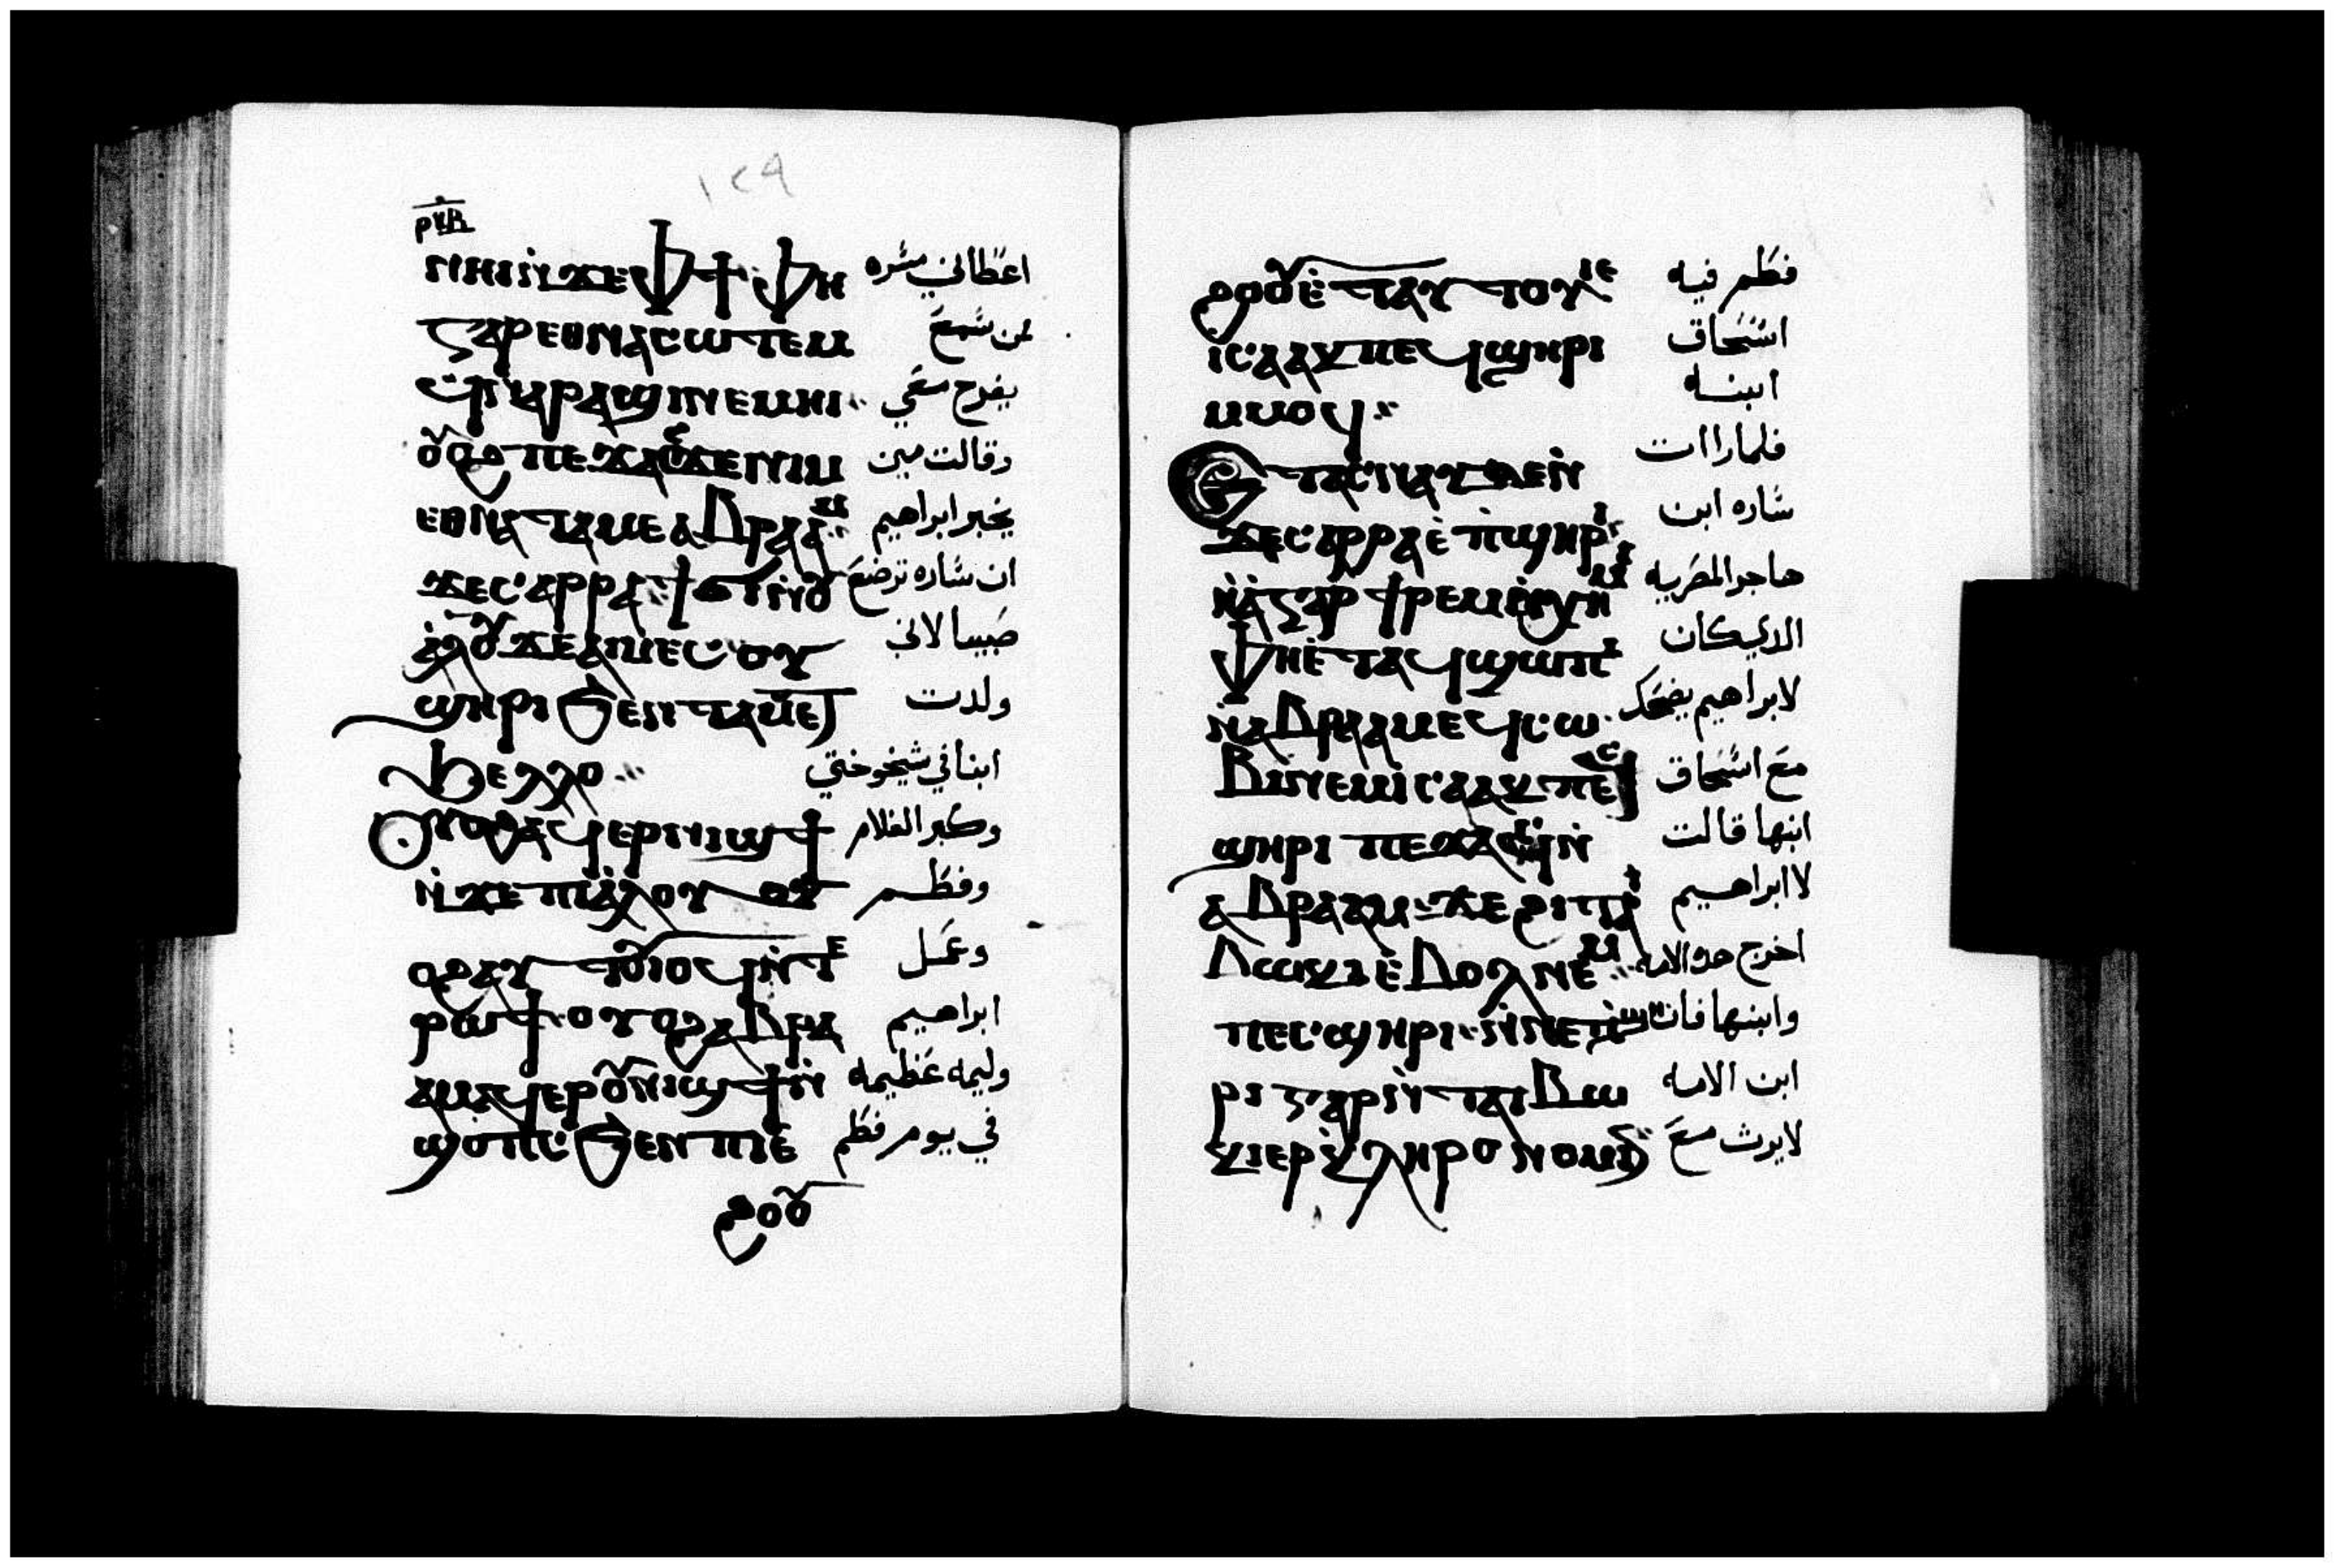 ١٢٩
ⲣⲕⲃ
ⲛⲏⲓⲛϫⲉⲫϯⲫⲏ اعطاني مسره
ⲅⲁⲣⲉⲑⲛⲁⲥⲱⲧⲉⲙ لمن سمع
ⲉϥⲓⲣⲁϣⲓⲛⲉⲙⲏⲓ يفرح معي
ⲟⲩⲟϩⲡⲉϫⲁⲥϫⲉⲛⲓⲙ وقالت مين
ⲉⲑⲛⲁⲧⲁⲙⲉⲁⲃⲣⲁⲁⲙ يخبر ابراهيم
ϫⲉⲥⲁⲣⲣⲁϯϭⲓⲛⲟⲩ ان ساره ترضع
ⲁⲗⲟⲩϫⲉⲁⲓⲙⲉⲥⲟⲩ صبيا لاني
ϣⲏⲣⲓϧⲉⲛⲧⲁⲙⲉⲧ ولدت
ϧⲉⲗⲗⲟ ابنا في شيخوختي
ⲟⲩⲟϩⲁϥⲉⲣⲛⲓϣϯ وكبر الغلام
ⲛϫⲉⲡⲓⲁⲗⲟⲩⲟⲩ وفطم
ⲟϩⲁⲩⲧⲟⲩⲓⲟϥⲛⲧⲉ وعمل
ⲣⲱϯⲟⲩⲟϩⲁⲃⲣⲁ ابراهيم
ⲁⲙⲁϥⲉⲣⲟⲩⲛⲓϣϯⲛ وليمه عظيمه
ϣⲟⲡⲥϧⲉⲛⲡⲓⲉ في يوم فطم
ϩⲟⲟⲩ
ϩⲟⲟⲩⲉⲧⲁⲩⲧⲟⲩⲓⲉ فطم فيه
ⲓⲥⲁⲁⲕⲡⲉϥϣⲏⲣⲓ اسحاق
ⲙⲙⲟϥ ابنه
ⲉⲧⲁⲥⲛⲁⲩϫⲉⲛ فلما راات
ϫⲉⲥⲁⲣⲣⲁⲉⲡϣⲏⲣⲓ ساره ابن
ⲛⲁⲅⲁⲣϯⲣⲉⲙⲛⲭⲏⲙⲓ هاجر المصريه
ⲫⲏⲉⲧⲁϥϣⲱⲡⲓ الدي كان
ⲛⲁⲃⲣⲁⲁⲙⲉϥⲥⲱ لابراهيم يضحك
ⲃⲓⲛⲉⲙⲓⲥⲁⲁⲕⲡⲉⲥ مع اسحاق
ϣⲏⲣⲓ ⲡⲉϫⲁⲥⲛ ابنها قالت
ⲁⲃⲣⲁⲁⲙϫⲉϩⲓⲧⲁⲓ لاابراهيم
ⲃⲱⲕⲓⲉⲃⲟⲗⲛⲉⲙ اخرج هده الامه
ⲡⲉⲥϣⲏⲣⲓⲛⲛⲉⲡϣⲏ وابنها فان
ⲣⲓⲅⲁⲣⲛⲧⲁⲓⲃⲱ ابن الامه
ⲕⲓⲉⲣⲕⲗⲏⲣⲟⲛⲟⲙⲓⲛ لايرث مع